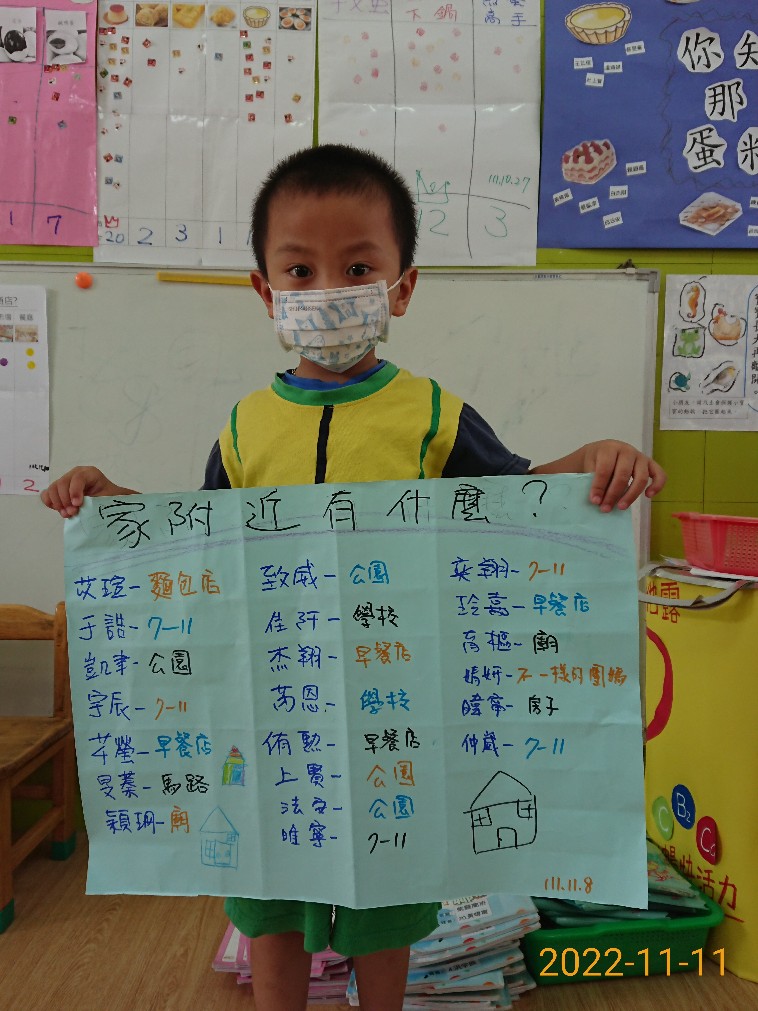 下鍋
高手
111.10.27
1 7
20 2 3 1
12 3
你知
那
蛋料
家附近有什麼？
苡瑄-麵包店
于誥-7-11
凱聿-公園
宇辰-7-11
芊瑩-早餐店
旻蓁-馬路
穎珊-廟
致威-公園
佳阡-學校
杰翔-早餐店
芮恩-學校
侑勳-早餐店
上賢-公園
法安-公園
唯寧-7-11
奕翔-7-11
玲嘉-早餐店
育樞-廟
嫣妍-不一樣的圍牆
暐寧-房子
仲崴-7-11
111.11.8
露
C B2 C
活力
2022-11-11